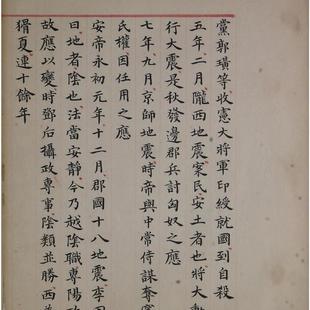 黨郭璜等收憲大將軍印綬就國到自殺
五年二月隴西地震案民安土者也將大動
行大震是秋發邊郡兵討匈奴之應
七年九月京師地震時帝與中常侍謀奪
氏權因任用之應
安帝永初元年十二月郡國十八地震李固
曰地者陰也法當安靜今乃越陰職專陽政
故應以變時鄧后攝政專事陰類並勝西羌
猾夏連十餘年